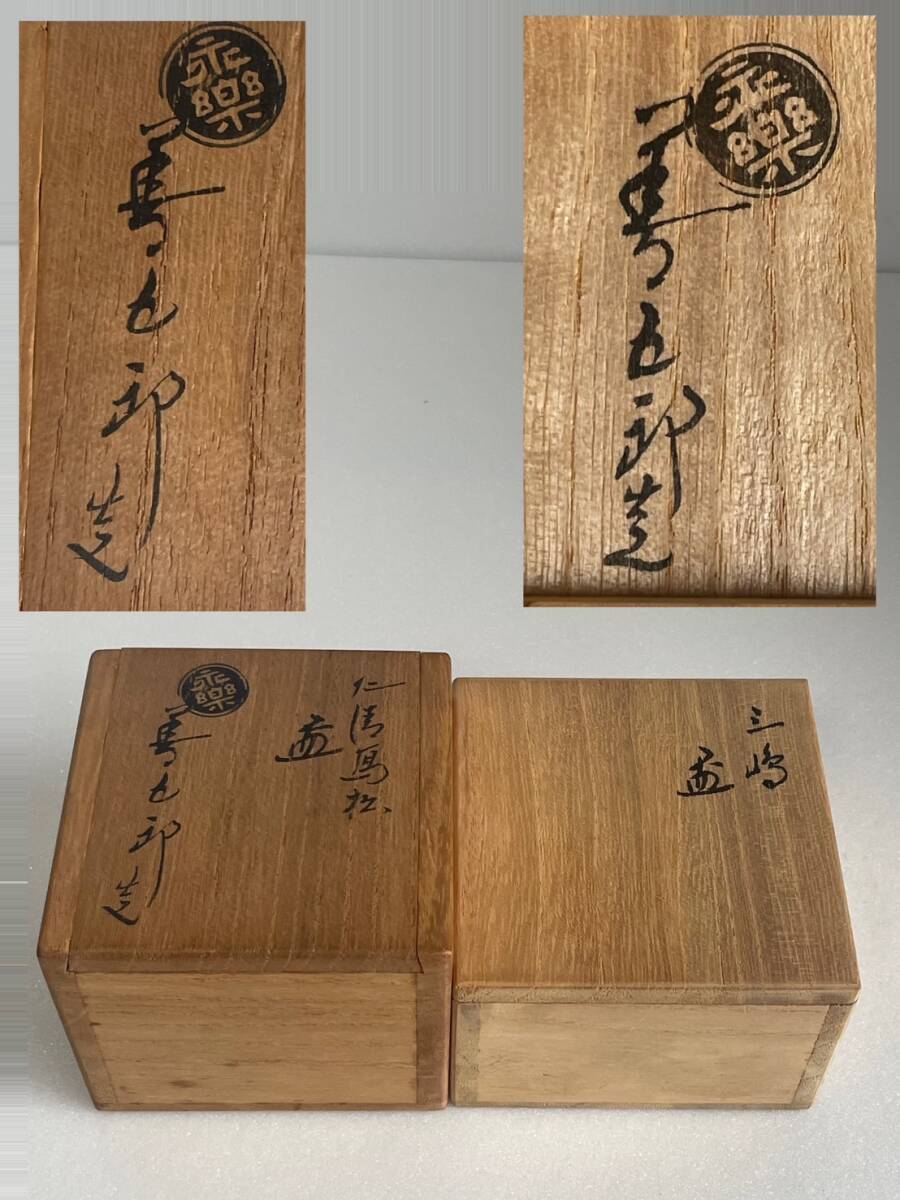 永樂
善五郎造
永樂
善五郎造
仁清写松
盃
永樂
善五郎造
三嶋
盃